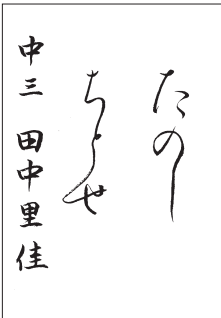 たのし
ちとせ
中三 田中里佳